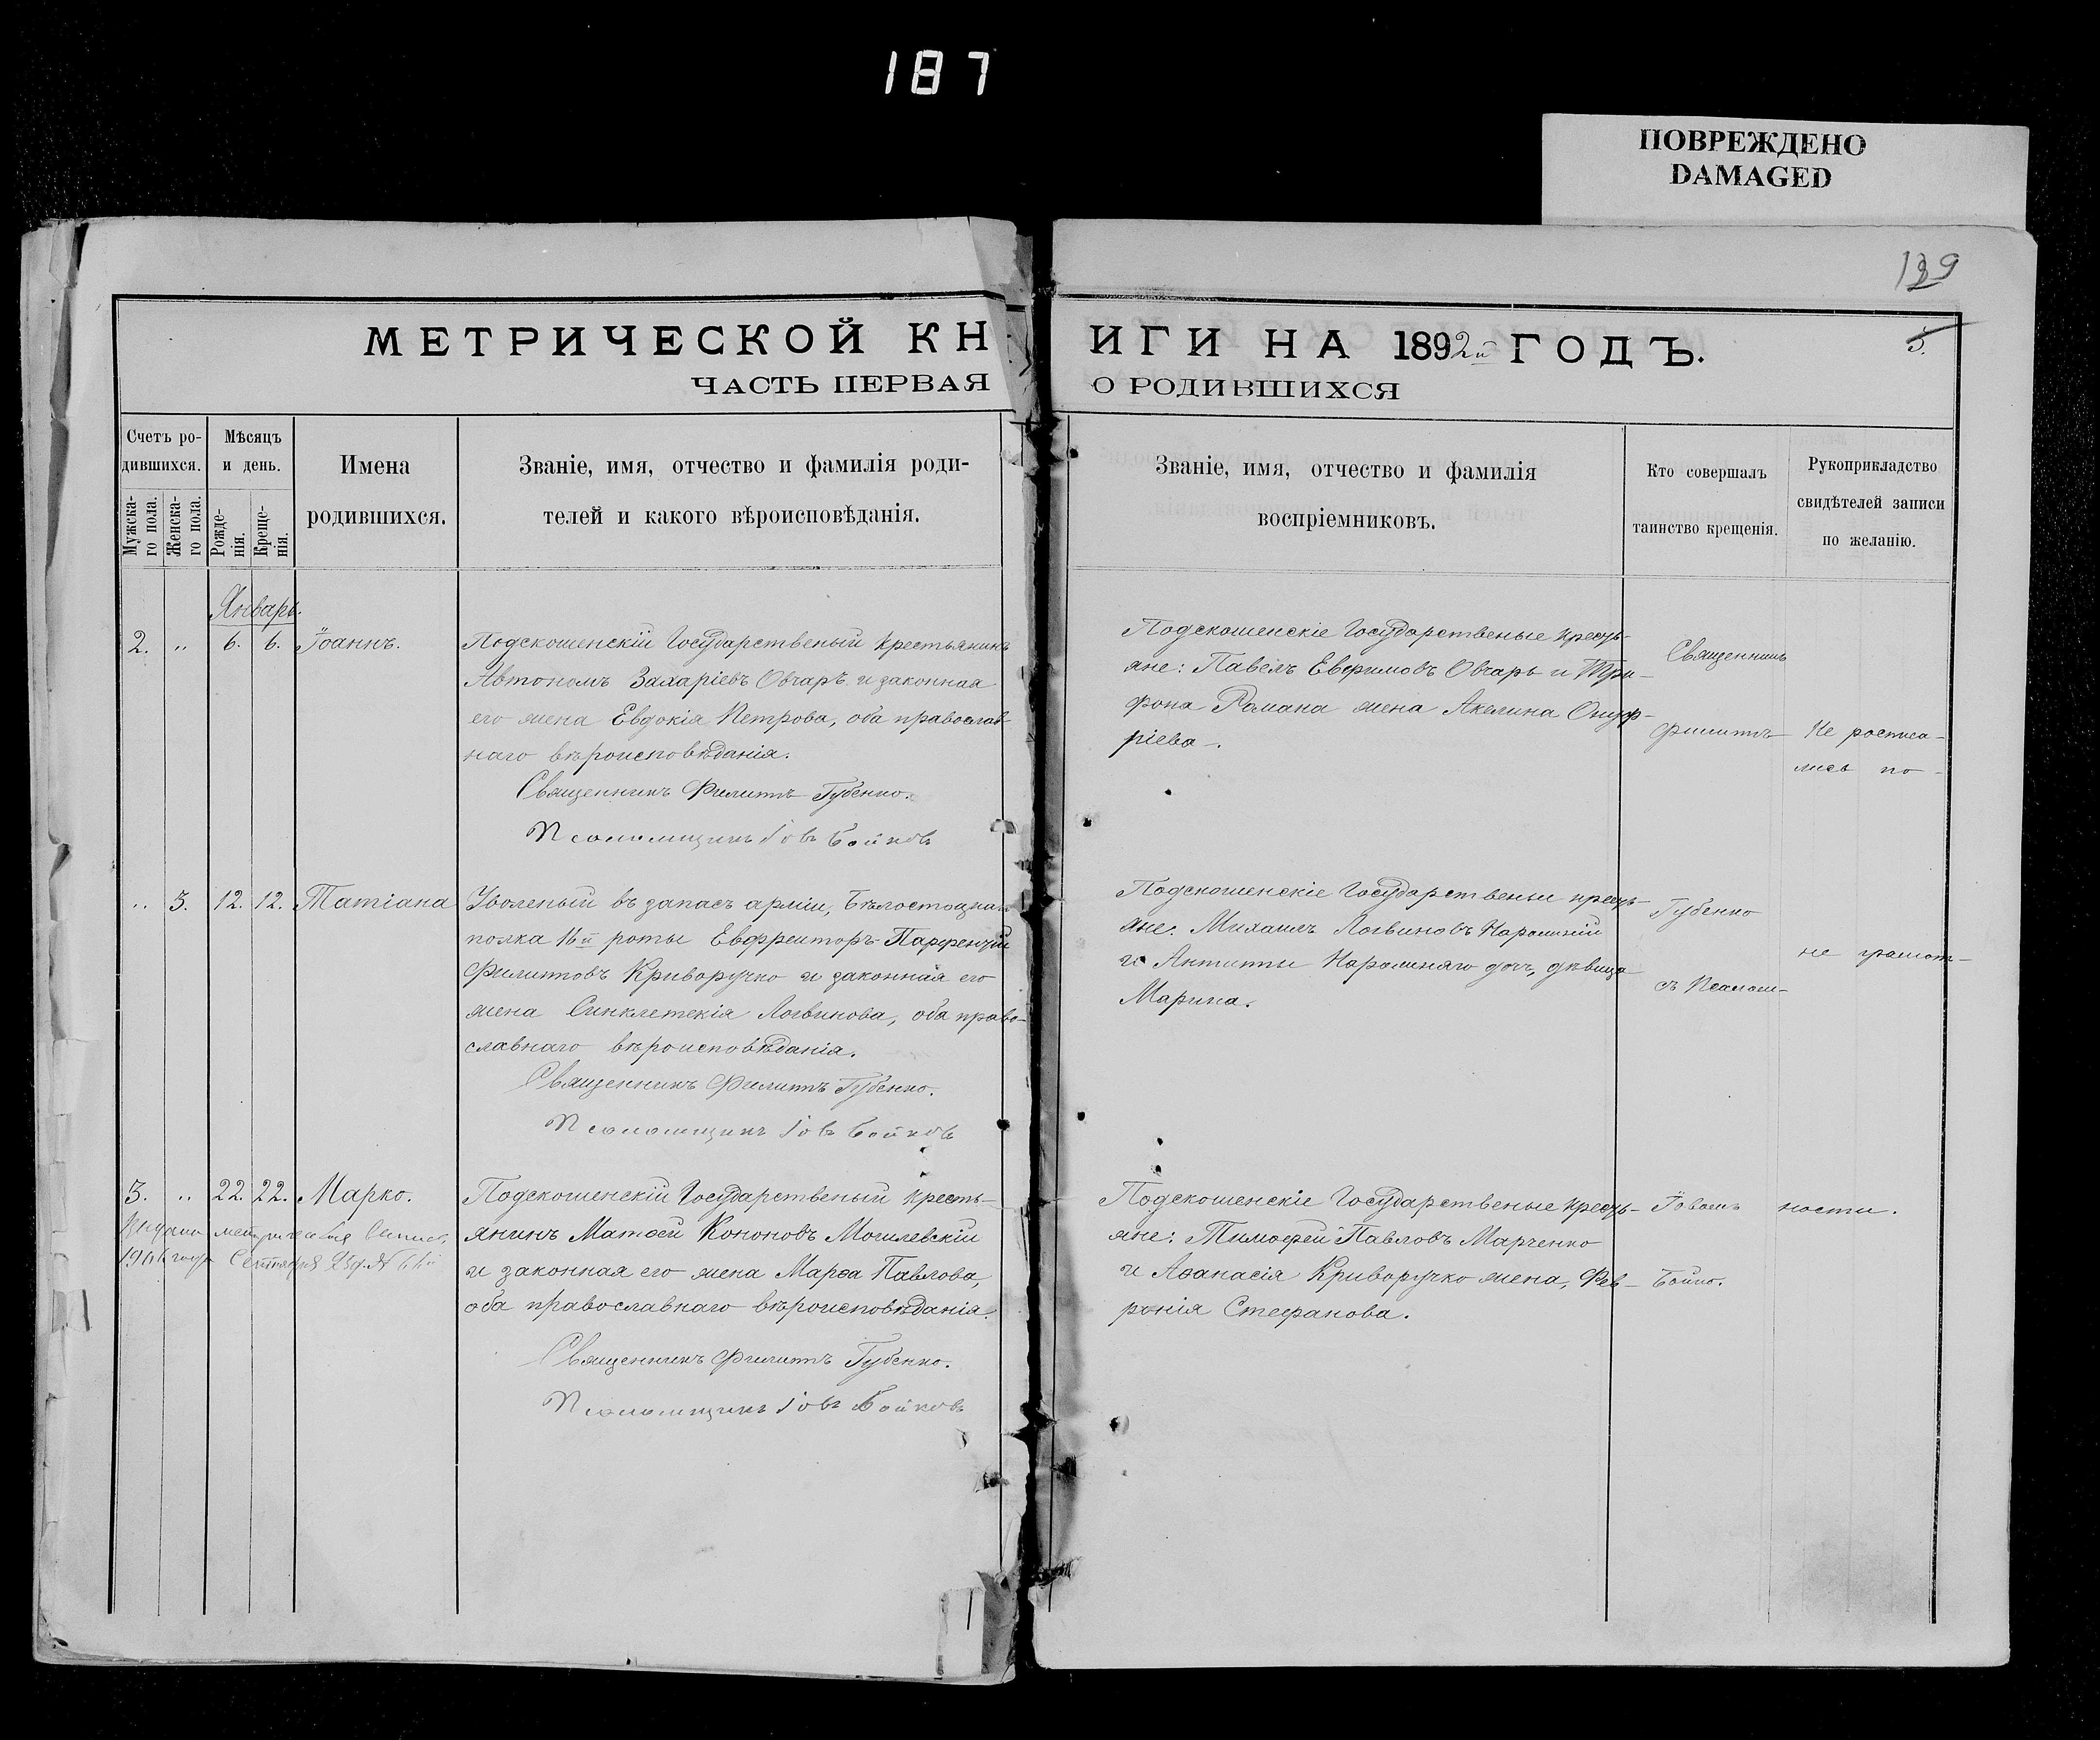 187
ПОВРЕЖДЕНО
DAMAGED
129
5.
МЕТРИЧЕСКОЙ КН
ИГИ НА 1892й ГОДЪ.
ЧАСТЬ ПЕРВАЯ
О РОДИВШИХСЯ
Счетъ ро-
дившихся.
Мужска-
го пола.
Женска-
го пола.
Мѣсяцъ
и день.
Рожде-
нія.
Креще-
нія.
Имена
родившихся.
Званіе, имя, отчество и фамилія роди-
телей и какого вѣроисповѣданія.
Званіе, имя, отчество и фамилія
воспріемниковъ.
Кто совершалъ
таинство крещенія.
Рукоприкладство
свидѣтелей записи
по желанію.
Январь.
2. „ 6. 6. Іоаннъ.
Подскошенскій Государственый крестьянинъ
Автономъ Захаріевъ Овчаръ и законная
его жена Евдокія Петрова, оба православ-
наго вѣроисповѣданія.
Священникъ Филиппъ Губенко.
Псаломщикъ Іовъ Бойковъ
Подскошенскіе Государственые кресть-
яне: Павелъ Евфимовъ Овчарь и Три-
фона Романа жена Акелина Онуф-
ріева.
Священникъ
Филиппъ
Не росписа-
лись по
„ 3. 12. 12. Татіана
Уволеный въ запасъ арміи, Бѣлостоцкаго
полка 16й роты Евфрейторъ Парфентій
Филипповъ Криворучко и законная его
жена Синклетекія Логвинова, оба право-
славнаго вѣроисповѣданія.
Священникъ Филиппъ Губенко.
Псаломщикъ Іовъ Бойковъ
Подскошенскіе Государственые кресть-
яне: Михаилъ Логвиновъ
и Антипы дочь, дѣвица
Марина.
Губенко
съ Псалом-
не грамот-
3. „ 22. 22. Марко.
Выдано метрическая
Сентября
Подскошенскій Государственый кресть-
янинъ Матѳей Кононовъ Могилевскій
и законная его жена Марѳа Павлова,
оба православнаго вѣроисповѣданія.
Священникъ Филиппъ Губенко.
Псаломщикъ Іовъ Бойковъ
Подскошенскіе Государственые кресть-
яне: Тимофей Павловъ Марченко
и Аѳанасія Криворучко жена, Фев-
ронія Стефанова.
Іовомъ
Бойко.
ности.